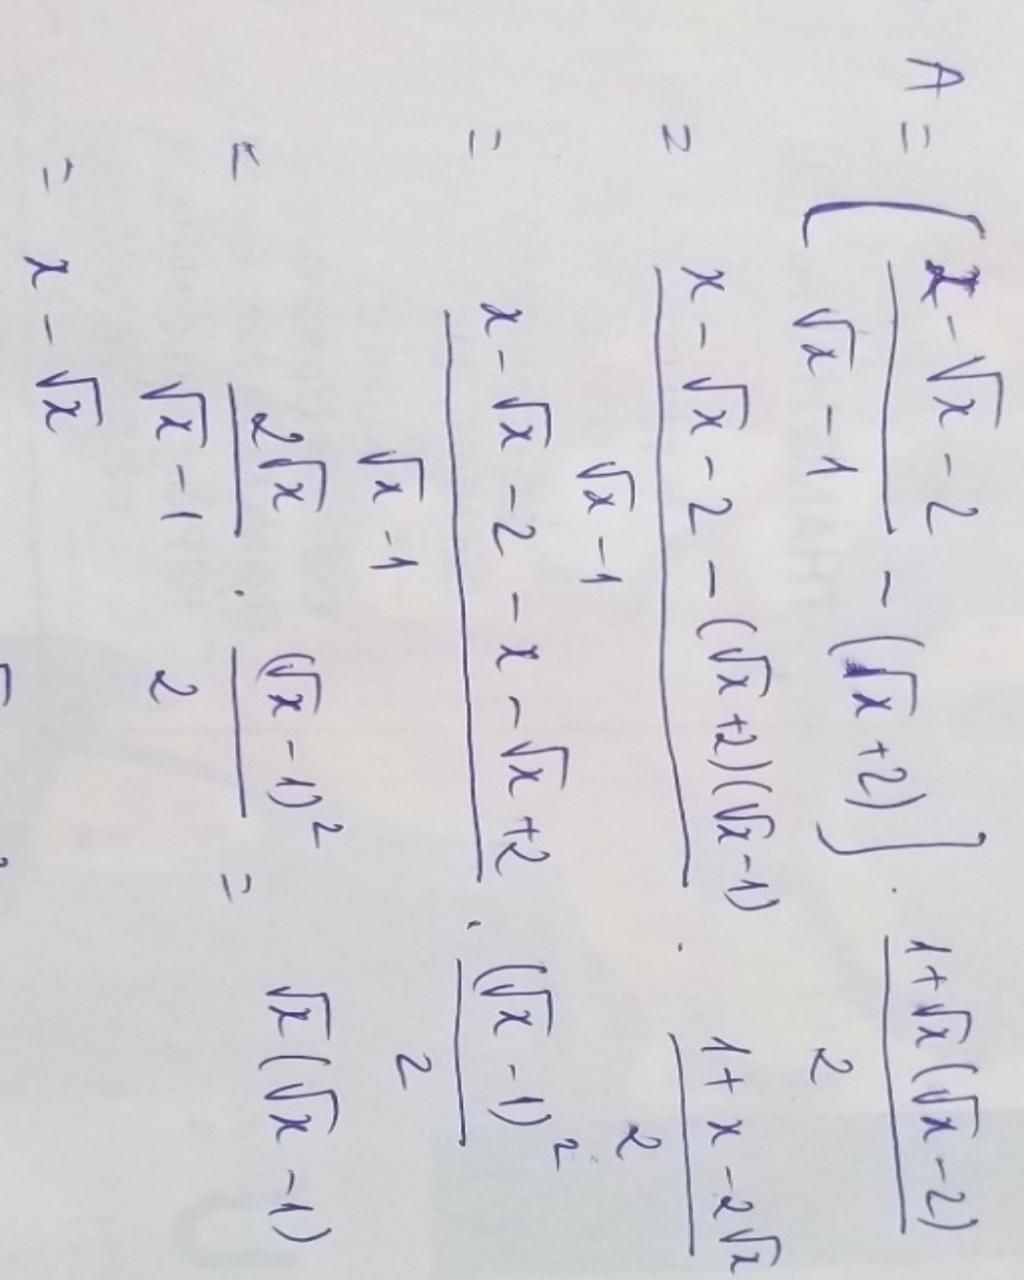 A = [(x - √x - 2)/(√x - 1) - (√x + 2)] . (1 + √x(√x - 2))/2
= (x - √x - 2 - (√x + 2)(√x - 1))/(√x - 1) . (1 + x - 2√x)/2
= (x - √x - 2 - x - √x + 2)/(√x - 1) . (√x - 1)²/2
= 2√x/(√x - 1) . (√x - 1)²/2 = √x(√x - 1)
= x - √x